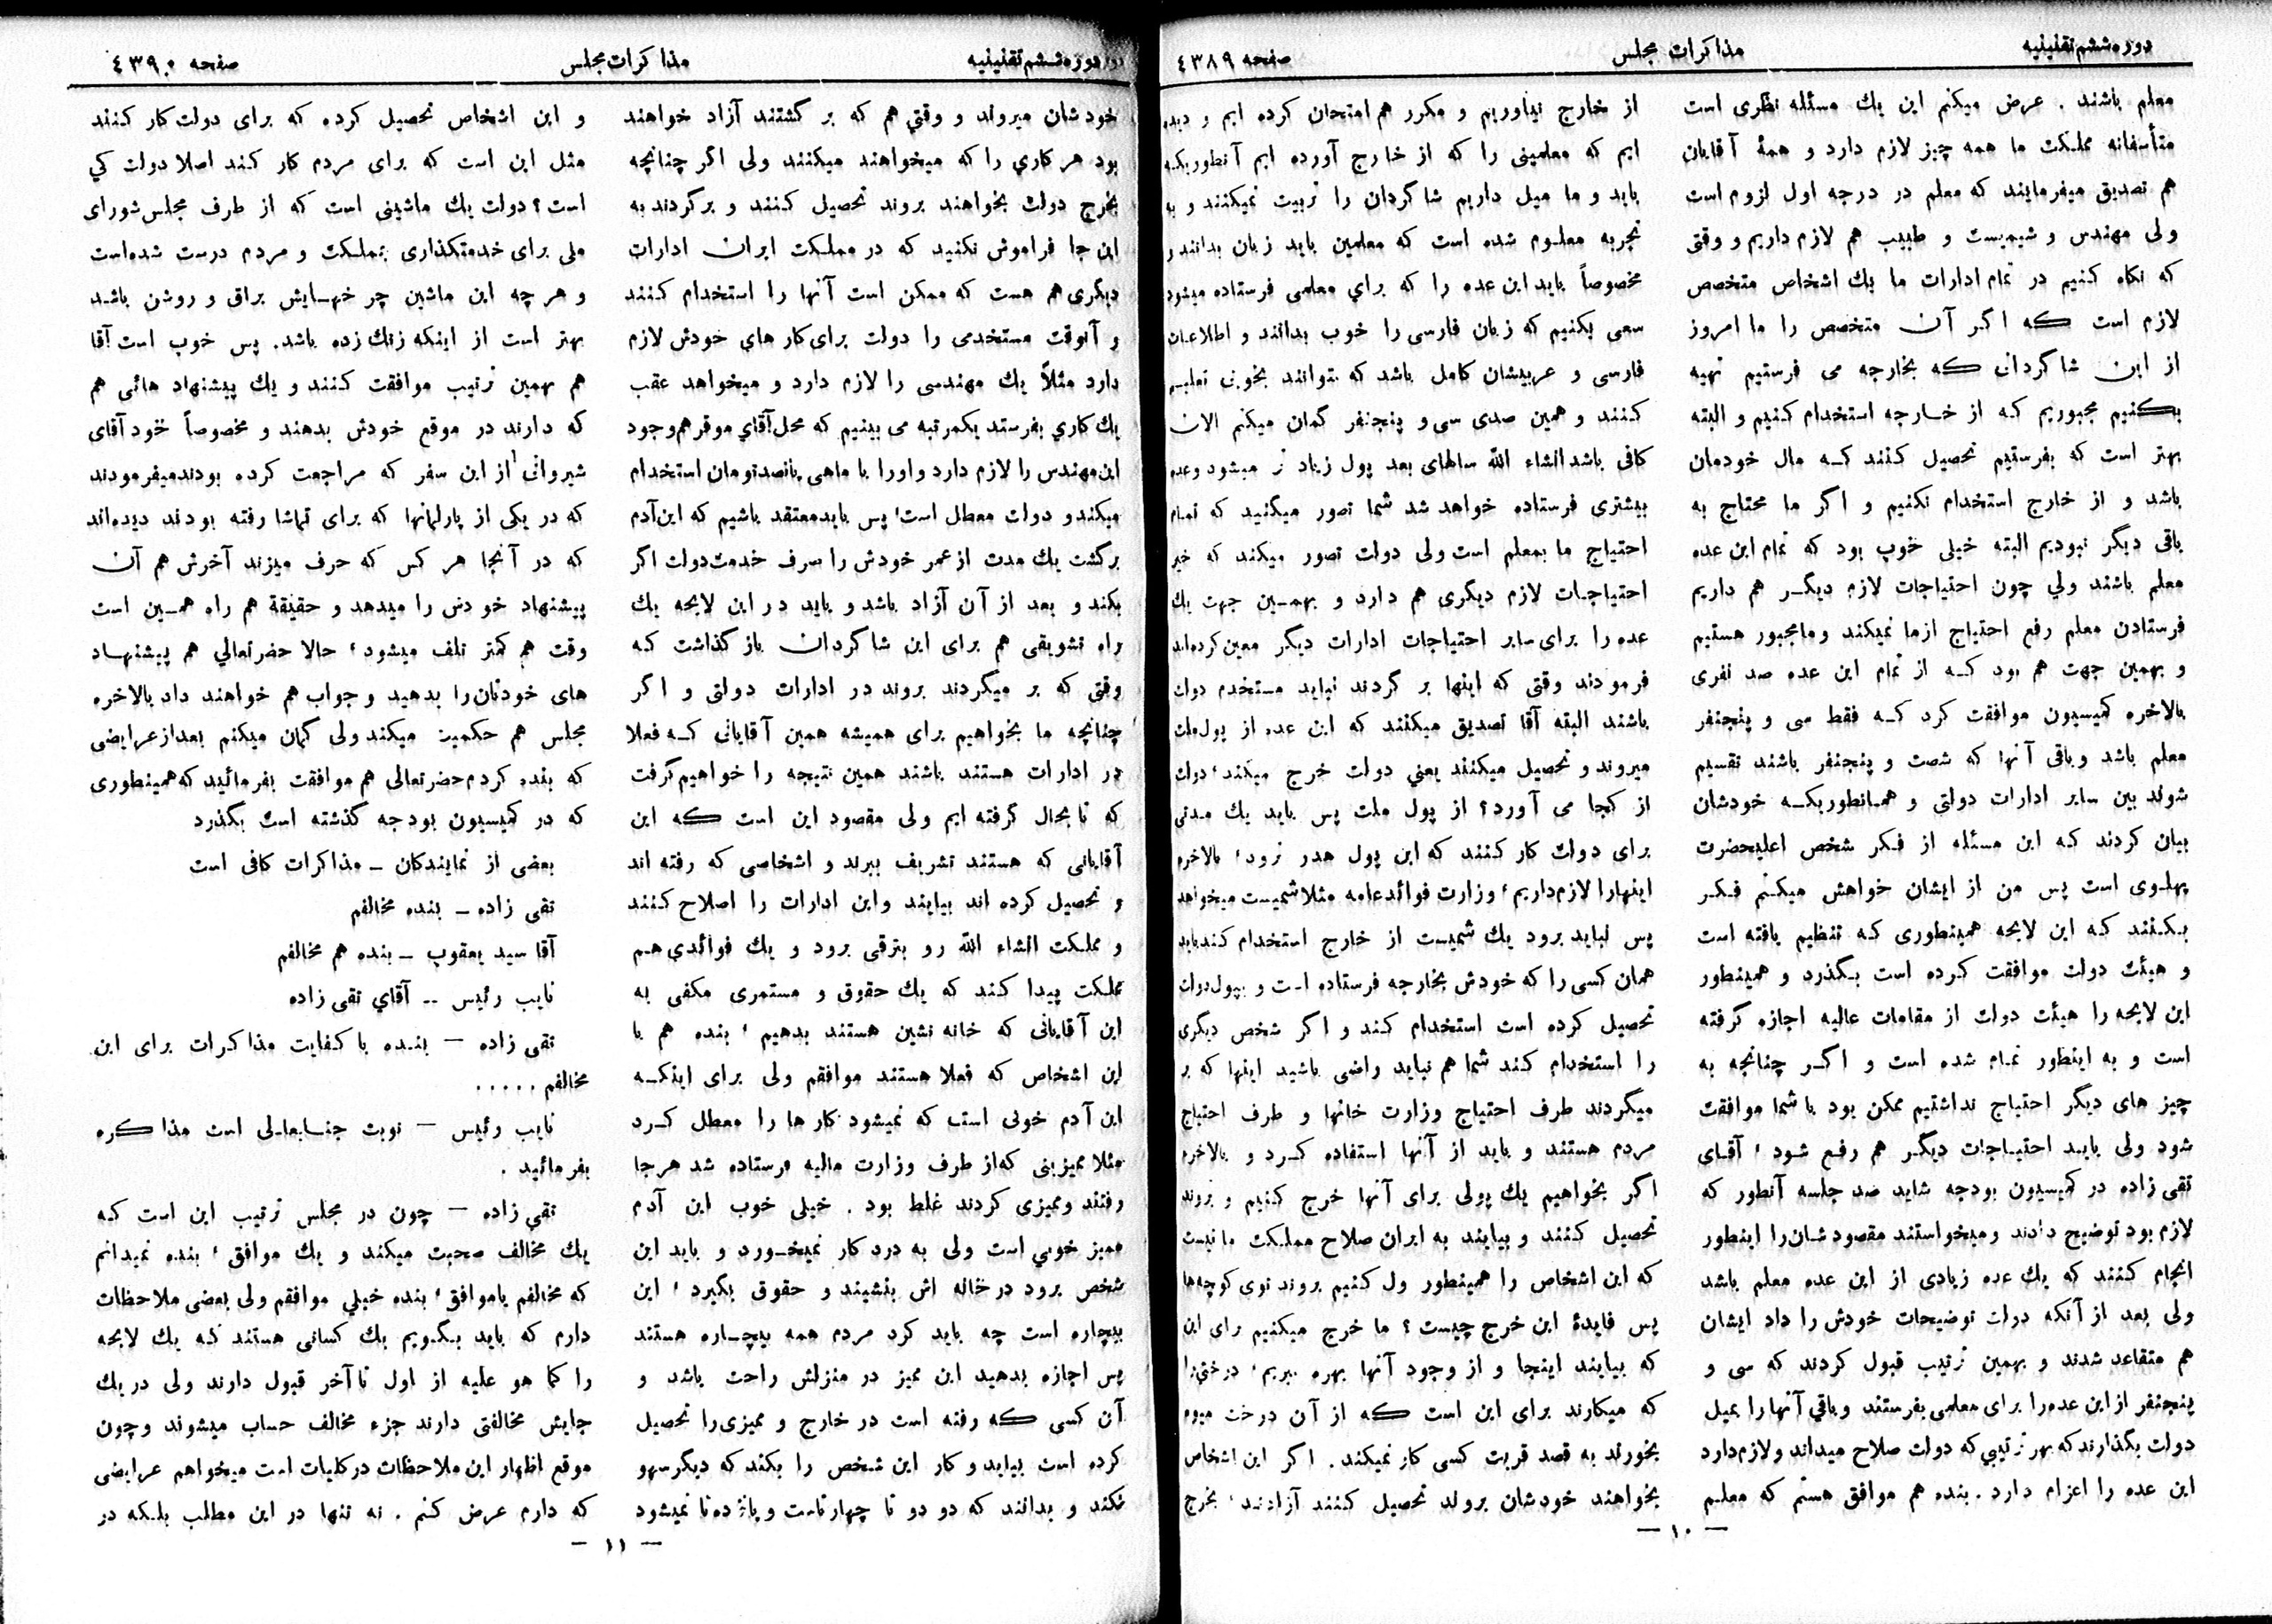 دوره ششم تقنینیه
مذاکرات مجلس
صفحه ٤٣٨٩
معلم باشند . عرض میکنم این یك مسئله نظری است
متأسفانه مملکت ما همه چیز لازم دارد و همهٔ آقایان
هم تصدیق میفرمایند که معلم در درجه اول لزوم است
ولی مهندس و شیمیست و طبیب هم لازم داریم و وقتی
که نگاه کنیم در تمام ادارات ما یك اشخاص متخصص
لازم است که اگر آن متخصص را ما امروز
از این شاگردانی که بخارجه می فرستیم تهیه
بکنیم مجبوریم که از خارجه استخدام کنیم و البته
بهتر است که بفرستیم تحصیل کنند که مال خودمان
باشد و از خارج استخدام نکنیم و اگر ما محتاج به
باقی دیگر نبودیم البته خیلی خوب بود که تمام این عده
معلم باشند ولي چون احتیاجات لازم دیگر هم داریم
فرستادن معلم رفع احتیاج ازما نمیکند و مامجبور هستیم
و بهمین جهت هم بود که از تمام این عده صد نفری
بالاخره کمیسیون موافقت کرد که فقط سی و پنجنفر
معلم باشد و باقی آنها که شصت و پنجنفر باشند تقسیم
شوند بین سایر ادارات دولتی و همانطوریکه خودشان
بیان کردند که این مسئله از فکر شخص اعلیحضرت
پهلوی است پس من از ایشان خواهش میکنم فکر
بکنند که این لایحه همینطوری که تنظیم یافته است
و هیئت دولت موافقت کرده است بگذرد و همینطور
این لایحه را هیئت دولت از مقامات عالیه اجازه گرفته
است و به اینطور تمام شده است و اگر چنانچه به
چیز های دیگر احتیاج نداشتیم ممکن بود با شما موافقت
شود ولی باید احتیاجات دیگر هم رفع شود ؛ آقای
تقی زاده در کمیسیون بودجه شاید صد جلسه آنطور که
لازم بود توضیح دادند و میخواستند مقصودشان را اینطور
انجام کنند که یك عده زیادی از این عده معلم باشد
ولی بعد از آنکه دولت توضیحات خودش را داد ایشان
هم متقاعد شدند و بهمین ترتیب قبول کردند که سی و
پنجنفر از این عده را برای معلمی بفرستند و باقي آنها را بمیل
دولت بگذارند که بهر ترتیبی که دولت صلاح میداند و لازم دارد
این عده را اعزام دارد . بنده هم موافق هستم که معلم
از خارج نیاوریم و مکرر هم امتحان کرده ایم و دیده
ایم که معلمینی را که از خارج آورده ایم آنطوریکه
باید و ما میل داریم شاگردان را تربیت نمیکنند و به
تجربه معلوم شده است که معلمین باید زبان بدانند و
مخصوصاً باید این عده را که براي معلمی فرستاده میشود
سعی بکنیم که زبان فارسی را خوب بدانند و اطلاعات
فارسی و عربیشان کامل باشد که بتوانند بخوبی تعلیم
کنند و همین صدی سی و پنجنفر گمان میکنم الان
کافی باشد انشاء الله سالهای بعد پول زیاد تر میشود و عده
بیشتری فرستاده خواهد شد شما تصور میکنید که تمام
احتیاج ما بمعلم است ولی دولت تصور میکند که خیر
احتیاجات لازم دیگری هم دارد و بهمین جهت یك
عده را برای سایر احتیاجات ادارات دیگر معین کرده اند
فرمودند وقتی که اینها بر گردند نباید مستخدم دولت
باشند البته آقا تصدیق میکنند که این عده از پول ملت
میروند و تحصیل میکنند یعني دولت خرج میکند؛ دولت
از کجا می آورد؟ از پول ملت پس باید یك مدتی
برای دولت کار کنند که این پول هدر نرود؛ بالاخره
اینهارا لازم داریم؛ وزارت فوائدعامه مثلا شمیست میخواهد
پس نباید برود یك شمیست از خارج استخدام کند باید
همان کسی را که خودش بخارجه فرستاده است و بپول دولت
تحصیل کرده است استخدام کند و اگر شخص دیگری
را استخدام کند شما هم نباید راضی باشید اینها که بر
میگردند طرف احتیاج وزارت خانها و طرف احتیاج
مردم هستند و باید از آنها استفاده کرد و بالاخره
اگر بخواهیم یك پولی برای آنها خرج کنیم و بروند
تحصیل کنند و بیایند به ایران صلاح مملکت ما نیست
که این اشخاص را همینطور ول کنیم بروند توی کوچه ها
پس فایدهٔ این خرج چیست ؟ ما خرج میکنیم برای این
که بیایند اینجا و از وجود آنها بهره ببریم؛ درختی را
که میکارند برای این است که از آن درخت میوه
بخورند به قصد قربت کسی کار نمیکند . اگر این اشخاص
بخواهند خودشان بروند تحصیل کنند آزادند؛ بخرج
— ۱۰ —
دوره ششم تقنینیه
مذاکرات مجلس
صفحه ٤٣٩٠
خودشان میروند و وقتي هم که بر گشتند آزاد خواهند
بود هر کاري را که میخواهند میکنند ولی اگر چنانچه
بخرج دولت بخواهند بروند تحصیل کنند و برگردند به
این جا فراموش نکنید که در مملکت ایران ادارات
دیگری هم هست که ممکن است آنها را استخدام کنند
و آنوقت مستخدمی را دولت برای کار های خودش لازم
دارد مثلاً یك مهندسی را لازم دارد و میخواهد عقب
یك کاري بفرستد یکمرتبه می بینیم که محل آقاي موقر هم وجود
این مهندس را لازم دارد و اورا با ماهی پانصدتومان استخدام
میکند و دولت معطل است؛ پس باید معتقد باشیم که این آدم
برگشت یك مدت از عمر خودش را صرف خدمت دولت اگر
بکند و بعد از آن آزاد باشد و باید در این لایحه یك
راه تشویقی هم برای این شاگردان باز گذاشت که
وقتی که بر میگردند بروند در ادارات دولتی و اگر
چنانچه ما بخواهیم برای همیشه همین آقایانی که فعلا
در ادارات هستند باشند همین نتیجه را خواهیم گرفت
که تا بحال گرفته ایم ولی مقصود این است که این
آقایانی که هستند تشریف ببرند و اشخاصی که رفته اند
و تحصیل کرده اند بیایند و این ادارات را اصلاح کنند
و مملکت انشاء الله رو بترقی برود و یك فوائدی هم
مملکت پیدا کند که یك حقوق و مستمری مکفی به
این آقایانی که خانه نشین هستند بدهیم ؛ بنده هم با
این اشخاص که فعلا هستند موافقم ولی برای اینکه
این آدم خوبی است که نمیشود کار ها را معطل کرد
مثلا ممیزینی که از طرف وزارت مالیه فرستاده شد هرجا
رفتند و ممیزی کردند غلط بود . خیلی خوب این آدم
ممیز خوبي است ولی به درد کار نمیخورد و باید این
شخص برود در خانه اش بنشیند و حقوق بگیرد ؛ این
بیچاره است چه باید کرد مردم همه بیچاره هستند
پس اجازه بدهید این ممیز در منزلش راحت باشد و
آن کسی که رفته است در خارج و ممیزی را تحصیل
کرده است بیاید و کار این شخص را بکند که دیگر سهو
نکند و بدانند که دو دو تا چهار تاست و پانزده تا نمیشود
و این اشخاص تحصیل کرده که برای دولت کار کنند
مثل این است که برای مردم کار کند اصلا دولت کي
است ؟ دولت یك ماشینی است که از طرف مجلس شورای
ملی برای خدمتگذاری بمملکت و مردم درست شده است
و هر چه این ماشین چرخهایش براق و روشن باشد
بهتر است از اینکه زنك زده باشد. پس خوب است آقا
هم بهمین ترتیب موافقت کنند و یك پیشنهاد هائی هم
که دارند در موقع خودش بدهند و مخصوصاً خود آقای
شیروانی از این سفر که مراجعت کرده بودند میفرمودند
که در یکی از پارلمانها که برای تماشا رفته بودند دیده اند
که در آنجا هر کس که حرف میزند آخرش هم آن
پیشنهاد خودش را میدهد و حقیقة هم راه همین است
وقت هم کمتر تلف میشود ؛ حالا حضرتعالي هم پیشنهاد
های خودتان را بدهید و جواب هم خواهند داد بالاخره
مجلس هم حکمیت میکند ولی گمان میکنم بعد از عرایضی
که بنده کردم حضرتعالی هم موافقت بفرمائید که همینطوری
که در کمیسیون بودجه گذشته است بگذرد
بعضی از نمایندگان ـ مذاکرات کافی است
تقی زاده ـ بنده مخالفم
آقا سید یعقوب ـ بنده هم مخالفم
نایب رئیس ـ آقاي تقی زاده
تقی زاده — بنده با کفایت مذاکرات برای این
مخالفم . . . . .
نایب رئیس — نوبت جنابعالی است مذاکره
بفرمائید .
تقي زاده — چون در مجلس ترتیب این است که
یك مخالف صحبت میکند و یك موافق ؛ بنده نمیدانم
که مخالفم یا موافق؛ بنده خیلي موافقم ولی بعضی ملاحظات
دارم که باید بگویم یك کسانی هستند که یك لایحه
را کما هو علیه از اول تا آخر قبول دارند ولی در یك
جایش مخالفتی دارند جزء مخالف حساب میشوند و چون
موقع اظهار این ملاحظات در کلیات است میخواهم عرایضی
که دارم عرض کنم . نه تنها در این مطلب بلکه در
— ۱۱ —